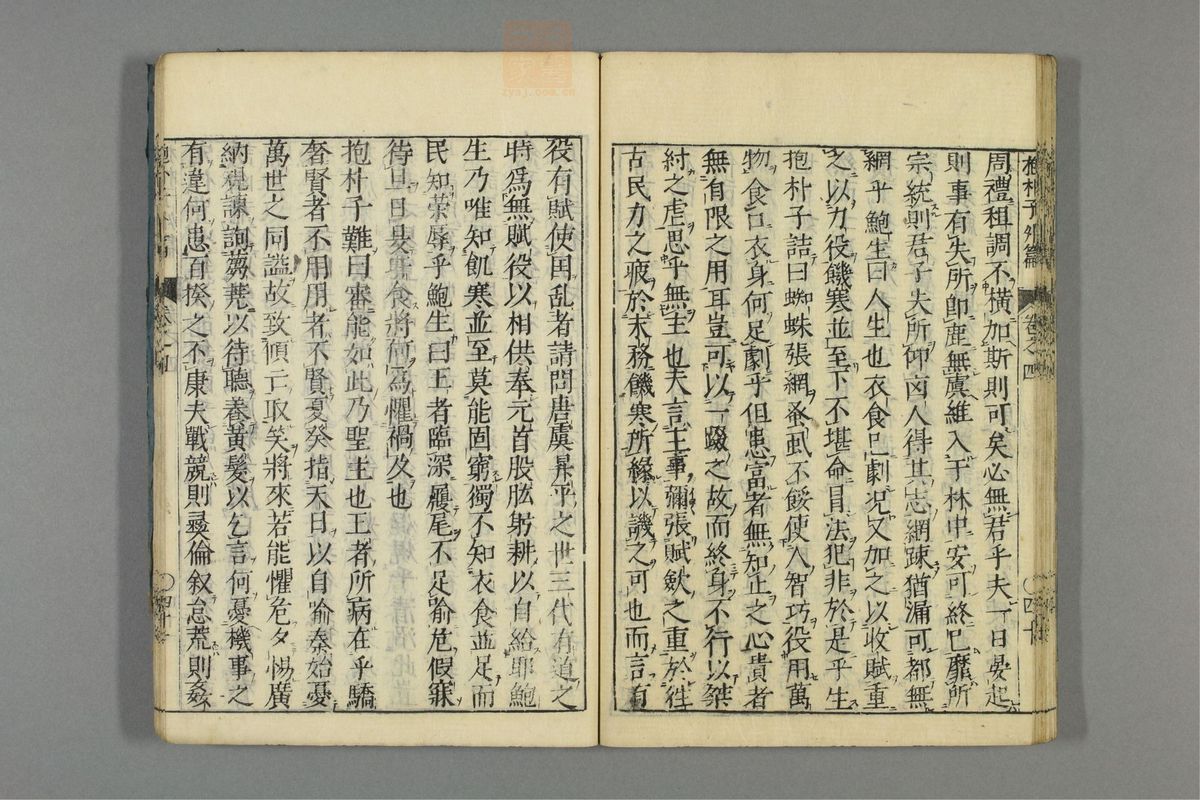 抱朴子外篇 卷之四 〇四十
周禮租調不橫加斯則可矣必無君乎夫一日晏起
則事有失所卽鹿無虞維入于林中安可終已靡所
宗統則君子失所仰凶人得其志網踈猶漏可都無
網乎鮑生曰人生也衣食已劇况又加之以收賦重
之以力役饑寒並至下不堪命冒法犯非於是乎生
抱朴子詰曰蜘蛛張網蚤虱不餒使人智巧役用萬
物食口衣身何足劇乎但患富者無知止之心貴者
無有限之用耳豈可以一蹶之故而終身不行以桀
紂之虐思乎無主也夫言主事彌張賦歛之重於徃
古民力之疲於末務饑寒所緣以譏之可也而言有
役有賦使囯乱者請問唐虞昇平之世三代有道之
時爲無賦役以相供奉元首股肱躬耕以自給耶鮑
生乃唯知飢寒並至莫能固窮獨不知衣食並足而
民知荣辱乎鮑生曰王者臨深履尾不足喻危假寐
待旦日昃旰食將何爲懼禍及也
抱朴子難曰審能如此乃聖主也王者所病在乎驕
奢賢者不用用者不賢夏癸指天日以自喻秦始憂
萬世之同謚故致傾亡取笑將來若能懼危夕惕廣
納規諫詢蒭蕘以待聴養黃髮以乞言何憂機事之
有違何患百揆之不康夫戰競則彛倫叙怠荒則姦